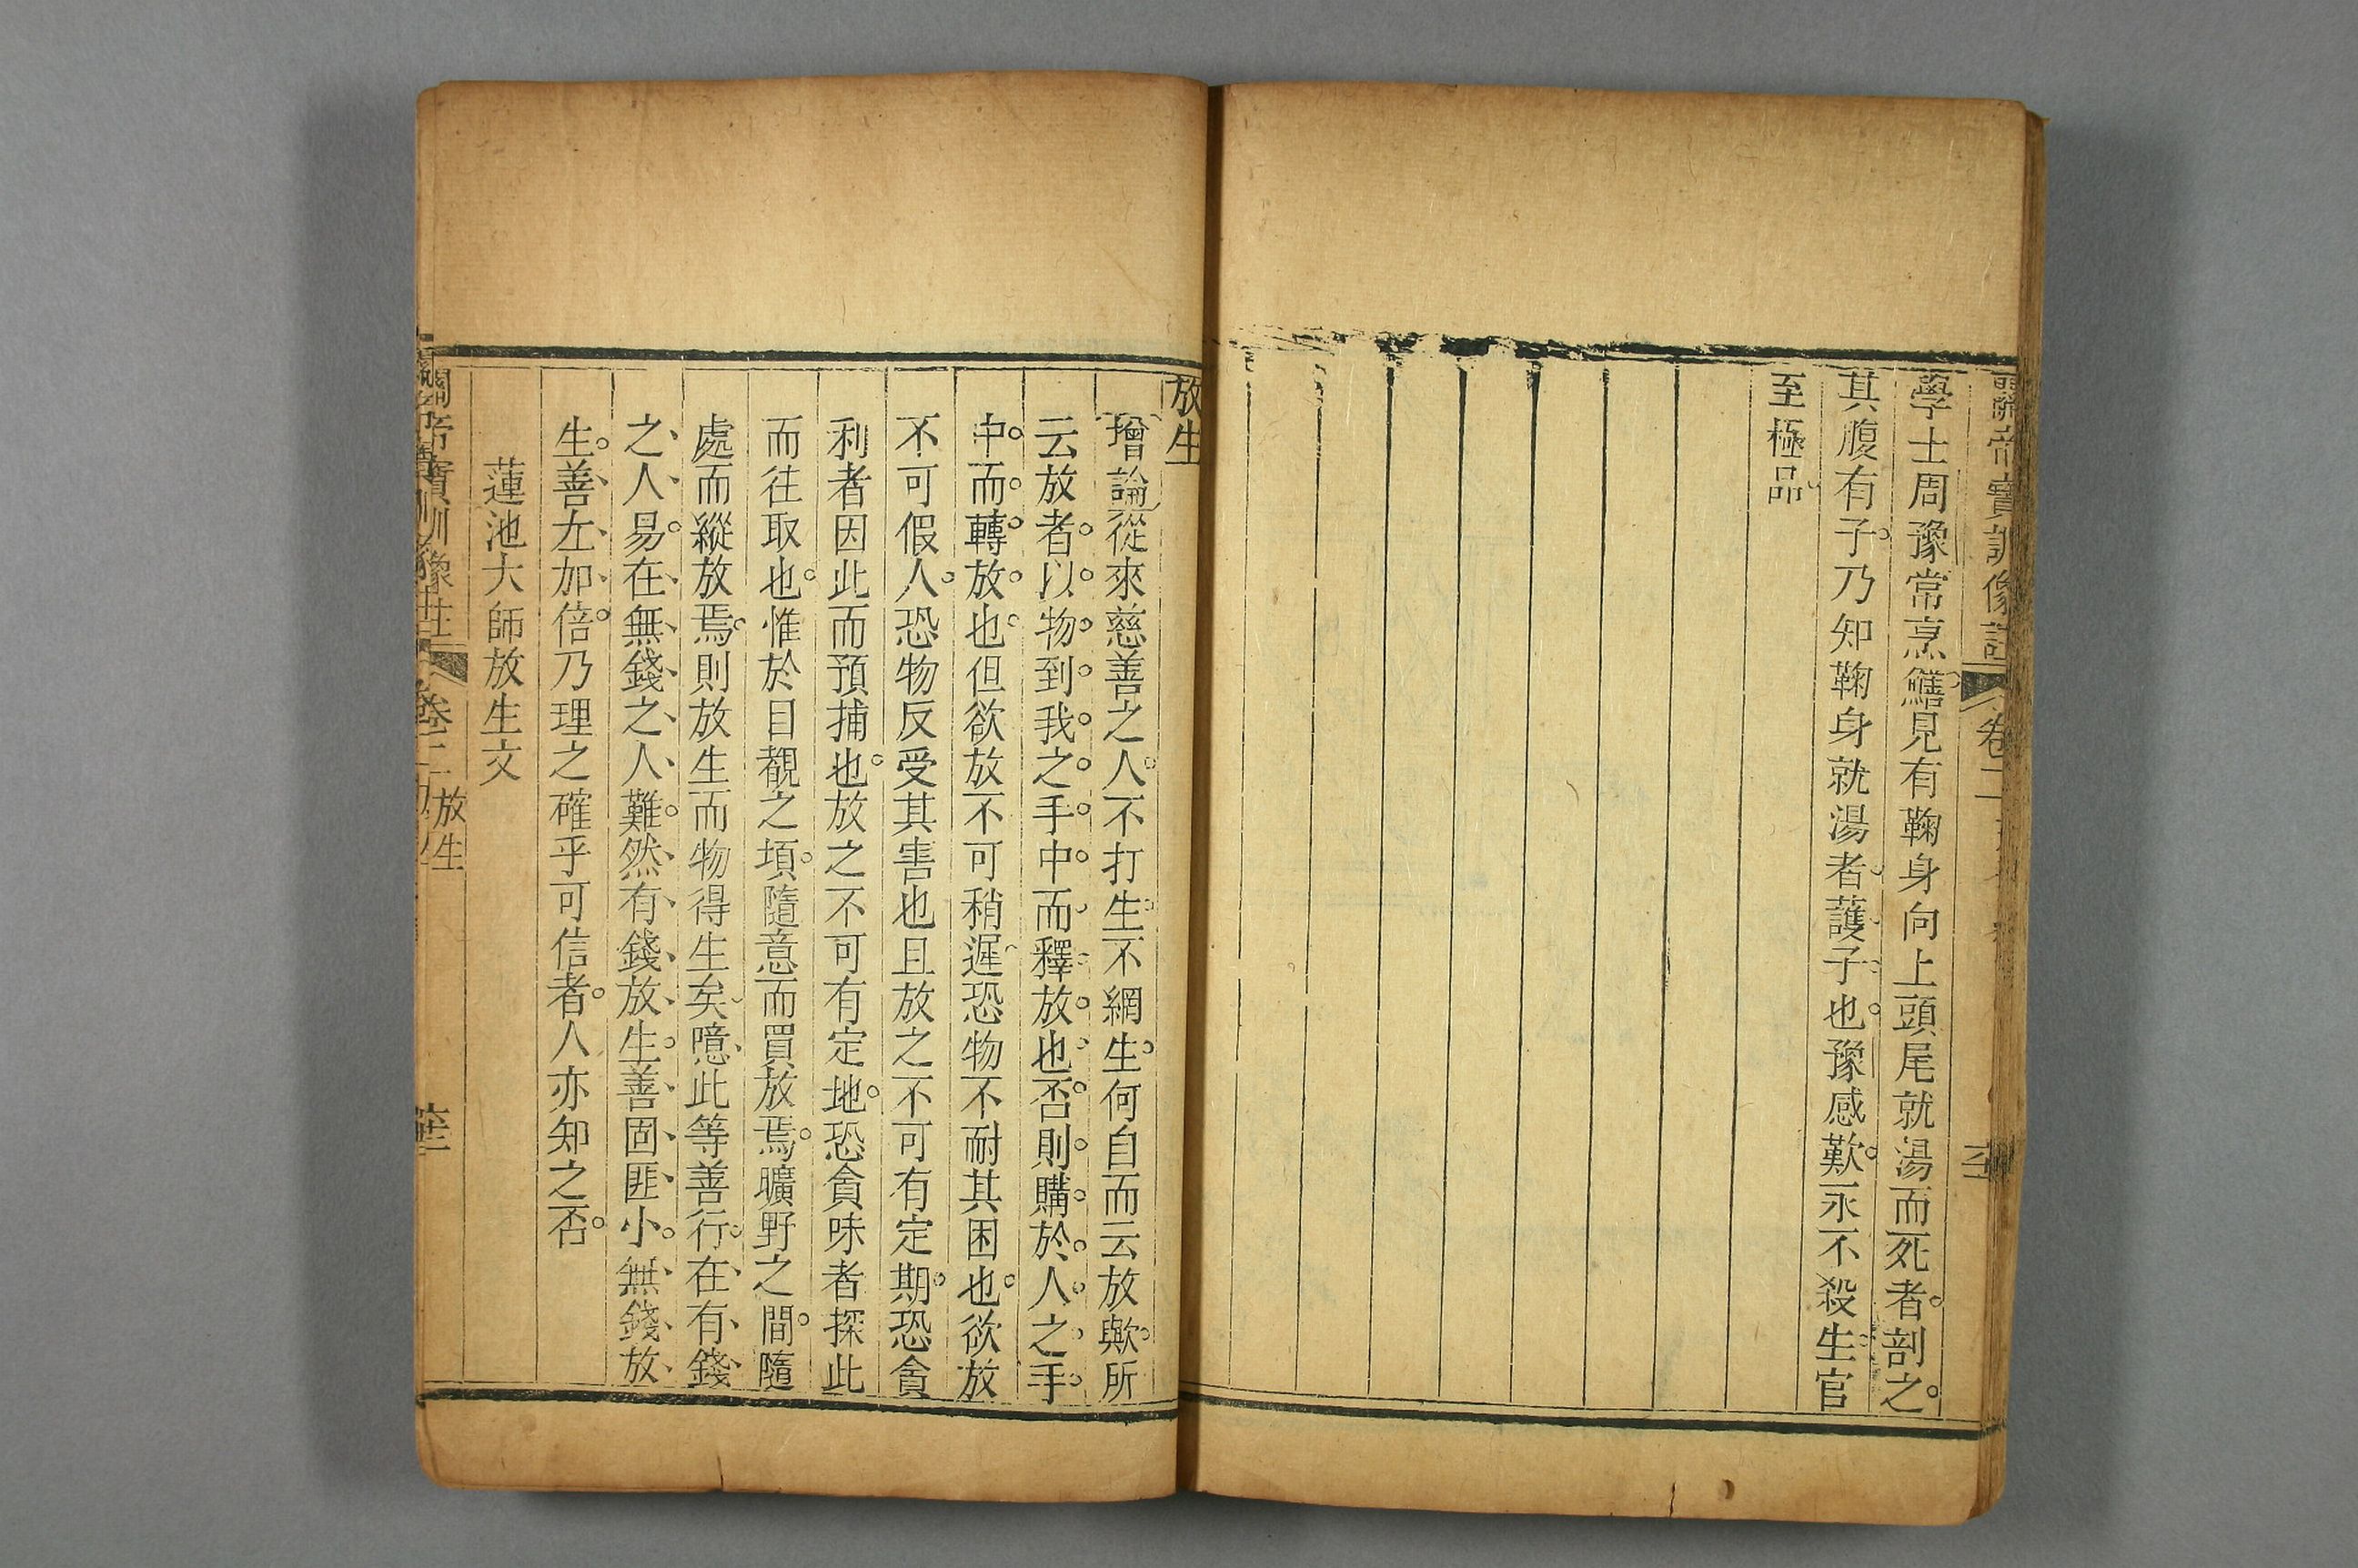 關帝寶訓像註 卷二
學士周豫常烹鱔見有鞠身向上頭尾就湯而死者剖之
其腹有子乃知鞠身就湯者護子也豫感歎永不殺生官
至極品
放生
增論從來慈善之人不打生不網生何自而云放歟所
云放者以物到我之手中而釋放也否則購於人之手
中而轉放也但欲放不可稍遲恐物不耐其困也欲放
不可假人恐物反受其害也且放之不可有定期恐貪
利者因此而預捕也放之不可有定地恐貪味者探此
而往取也惟於目覩之頃隨意而買放焉曠野之間隨
處而縱放焉則放生而物得生矣噫此等善行在有錢
之人易在無錢之人難然有錢放生善固匪小無錢放
生善尤加倍乃理之確乎可信者人亦知之否
蓮池大師放生文
關帝寶訓像註 卷二 放生